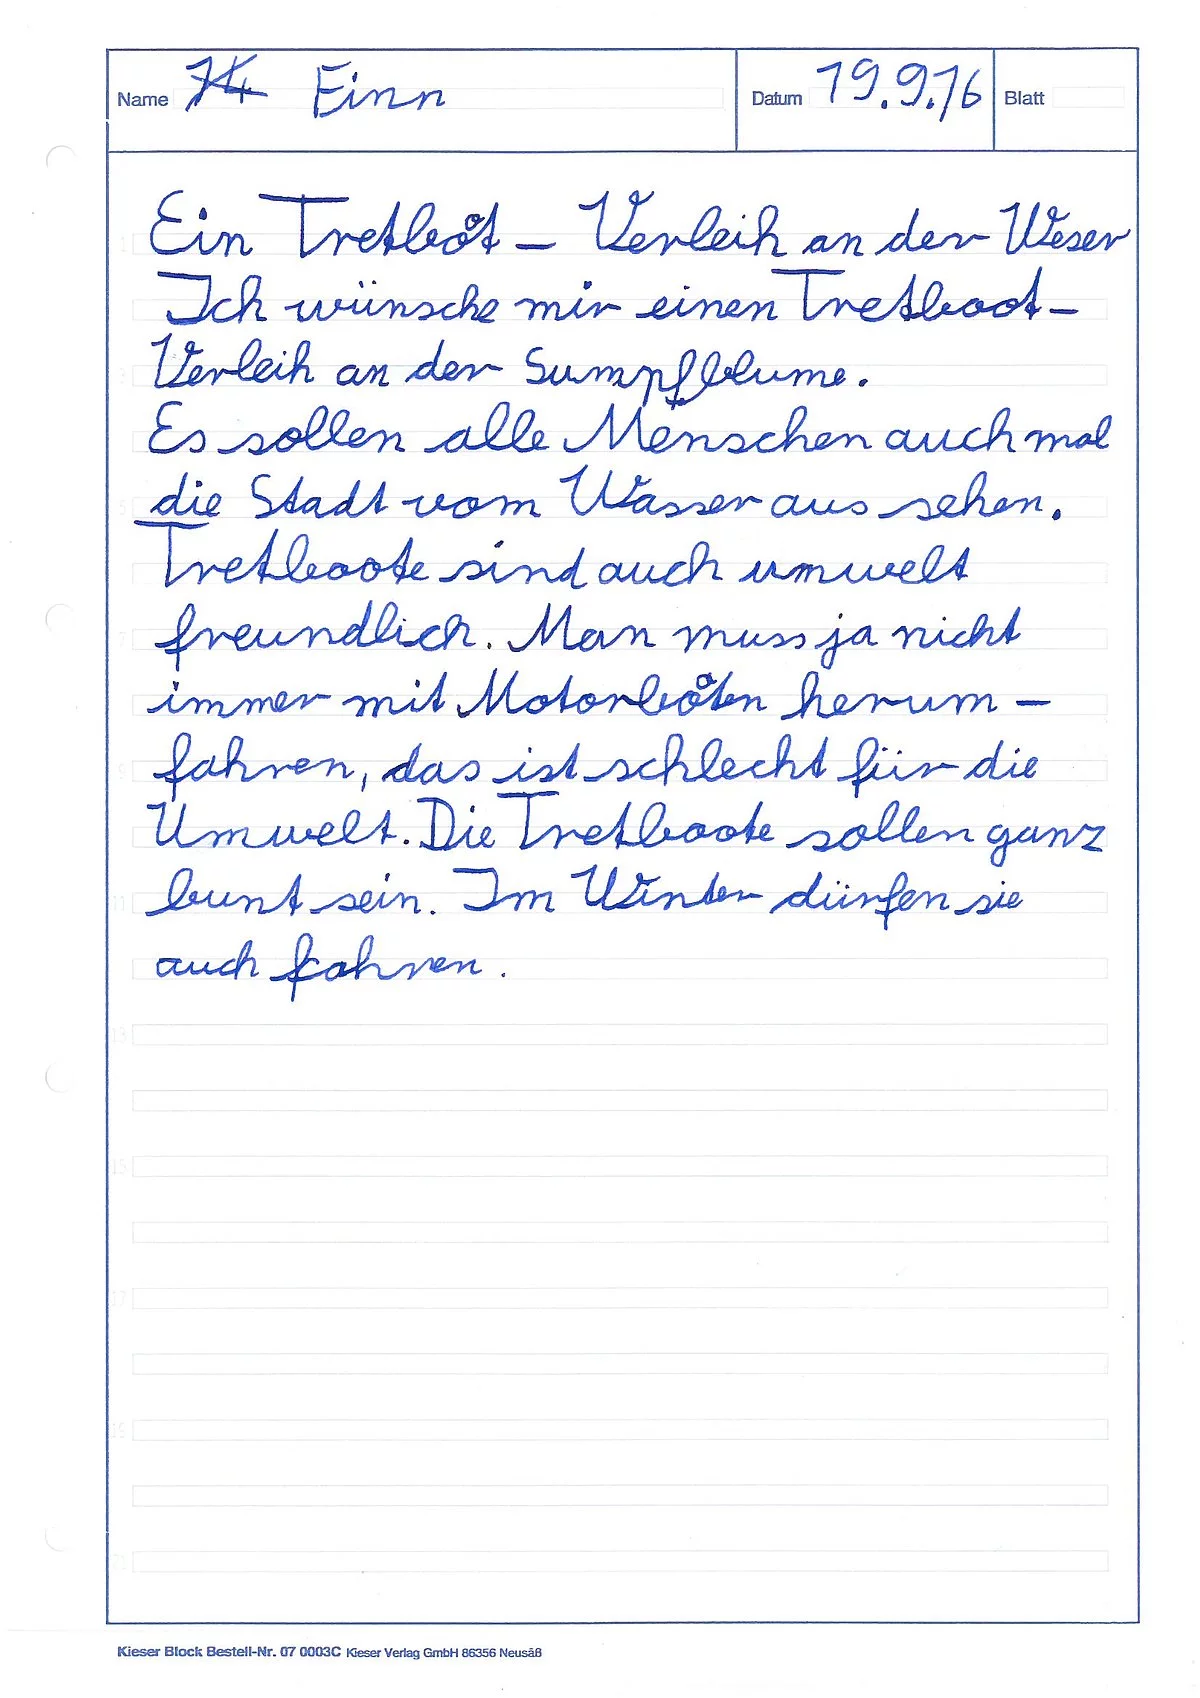 Name Finn Datum 19.9.16 Blatt
Ein Tretboot – Verleih an der Weser
Ich wünsche mir einen Tretboot-
Verleih an der Sumpfblume.
Es sollen alle Menschen auch mal
die Stadt vom Wasser aus sehen.
Tretboote sind auch umwelt
freundlich. Man muss ja nicht
immer mit Motorbooten herum-
fahren, das ist schlecht für die
Umwelt. Die Tretboote sollen ganz
bunt sein. Im Winter dürfen sie
auch fahren.
Kieser Block Bestell-Nr. 07 0003C Kieser Verlag GmbH 86356 Neusäß